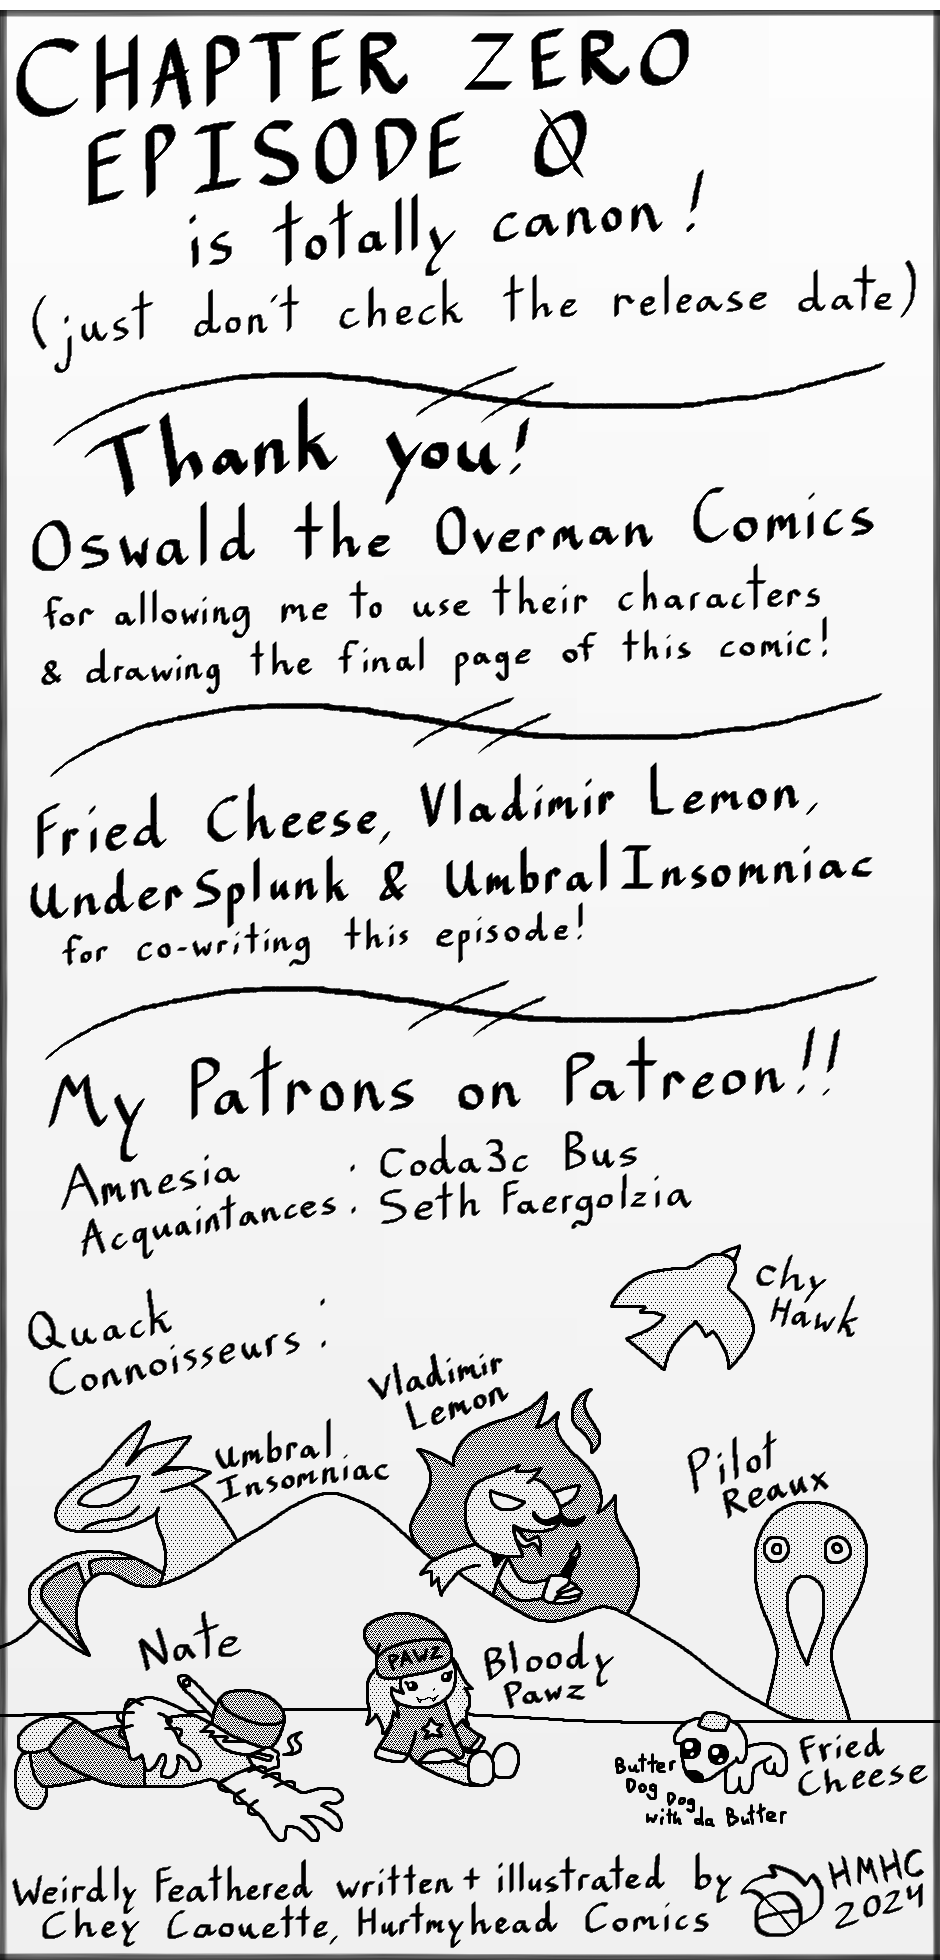 CHAPTER ZERO
EPISODE 0
is totally canon!
(just don't check the release date)
Thank you!
Oswald the Overman Comics
for allowing me to use their characters
& drawing the final page of this comic!
Fried Cheese, Vladimir Lemon,
UnderSplunk & Umbral Insomniac
for co-writing this episode!
My Patrons on Patreon!!
Amnesia
Acquaintances : Coda3c Bus
Seth Faergolzia
Chy
Hawk
Quack
Connoisseurs :
Vladimir
Lemon
Umbral
Insomniac
Pilot
Reaux
Nate
PAWZ
Bloody
Pawz
Butter
Dog Dog
with da Butter
Fried
Cheese
Weirdly Feathered written + illustrated by
Chey Caouette, Hurtmyhead Comics
HMHC
2024